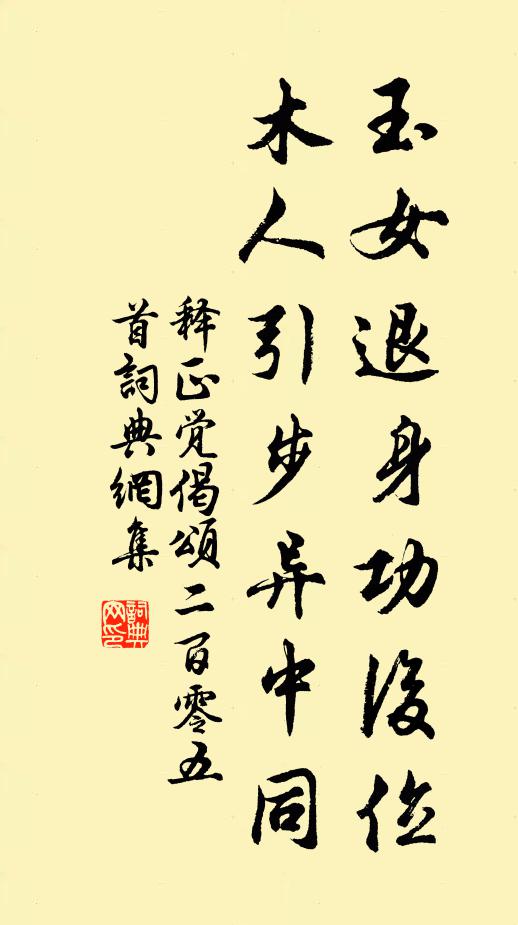 玉女退身功後位
木人引步异中同
释正觉偈頌二百零五
首詞典網集
詞典
网印